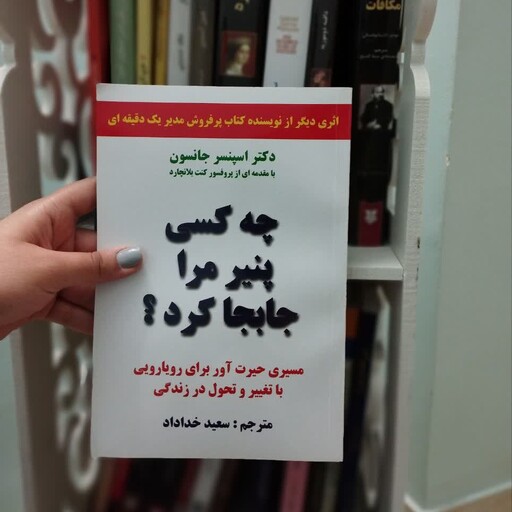 اثری دیگر از نویسنده کتاب پرفروش مدیر یک دقیقه ای
دکتر اسپنسر جانسون
با مقدمه ای از پروفسور کنت بلانچارد
چه کسی
پنیر مرا
جابجا کرد؟
مسیری حیرت آور برای رویارویی
با تغییر و تحول در زندگی
مترجم : سعید خداداد
مکافات